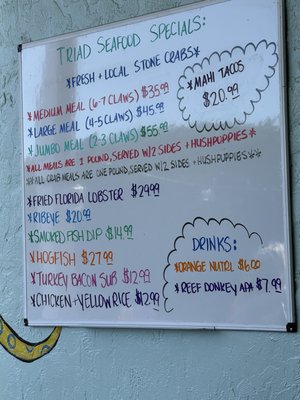 TRIAD SEAFOOD SPECIALS:
*FRESH + LOCAL STONE CRABS*
*MEDIUM MEAL (6-7 CLAWS) $35.99
*LARGE MEAL (4-5 CLAWS) $45.99
*JUMBO MEAL (2-3 CLAWS) $55.99
*ALL MEALS ARE 1 POUND, SERVED W/2 SIDES + HUSHPUPPIES*
*ALL CRAB MEALS ARE ONE POUND, SERVED W/2 SIDES + HUSHPUPPIES**
*FRIED FLORIDA LOBSTER $29.99
*RIBEYE $20.99
*SMOKED FISH DIP $14.99
*HOGFISH $27.99
*TURKEY BACON SUB $12.99
*CHICKEN + YELLOW RICE $12.99
*MAHI TACOS
$20.99
DRINKS:
*ORANGE NUTRL $6.00
*REEF DONKEY APA $7.99